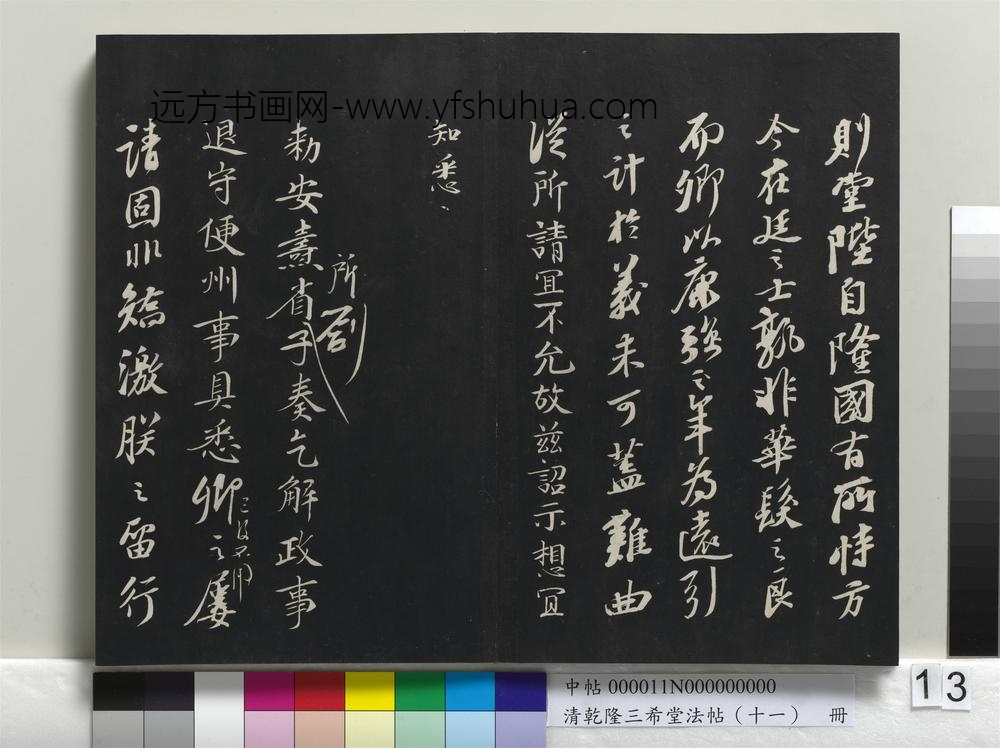 則堂陛自隆國有所恃方
今在廷之士孰非華髮之良
而卿以康強之年為遠引
之計於義未可蓋難曲
從所請宜不允故茲詔示想宜
知悉
所劄
勑安燾省子奏乞解政事
退守便州事具悉卿之屢
請固非矯激朕之留行
远方书画网-www.yfshuhua.com
中帖 000011N000000000
清乾隆三希堂法帖（十一） 冊
13